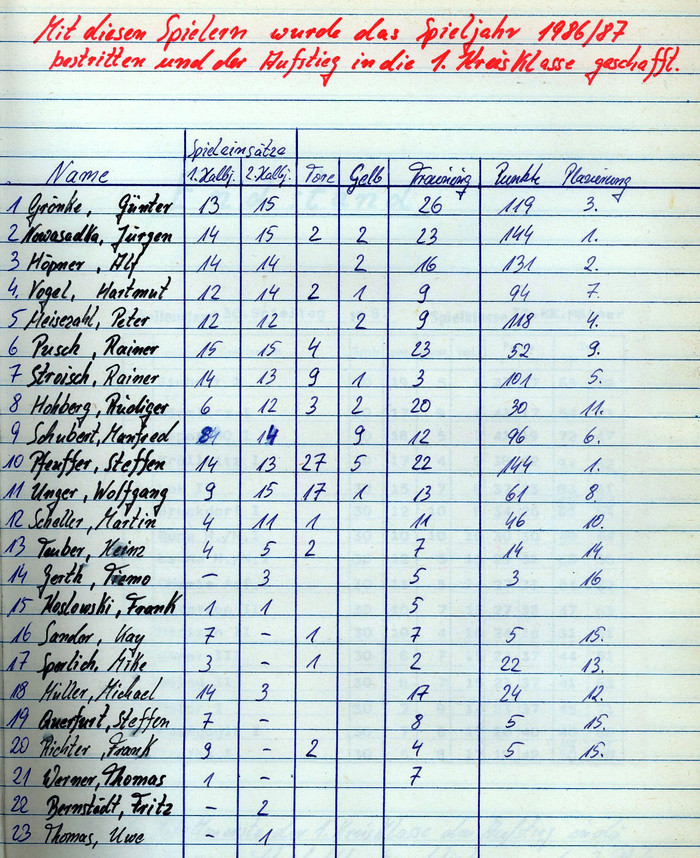 Mit diesen Spielern wurde das Spieljahr 1986/87
bestritten und der Aufstieg in die 1. Kreisklasse geschafft.
Spieleinsätze
Name 1. Halbj. 2. Halbj. Tore Gelb Training Punkte Plazierung
1 Grönke, Günter 13 15 26 119 3.
2 Nowasadka, Jürgen 14 15 2 2 23 144 1.
3 Höpner, Alf 14 14 2 16 131 2.
4. Vogel, Hartmut 12 14 2 1 9 94 7.
5 Meisezahl, Peter 12 12 2 9 118 4.
6 Pusch, Rainer 15 15 4 23 52 9.
7 Stroisch, Rainer 14 13 9 1 3 101 5.
8 Hohberg, Rüdiger 6 12 3 2 20 30 11.
9 Schubert, Manfred 14 9 12 96 6.
10 Pfeuffer, Steffen 14 13 27 5 22 144 1.
11 Unger, Wolfgang 9 15 17 1 13 61 8.
12 Scheller, Martin 4 11 1 11 46 10.
13 Tauber, Heinz 4 5 2 7 14 14.
14 Gerth, Tiemo – 3 5 3 16
15 Koslowski, Frank 1 1 5
16 Sandor, Kay 7 – 1 7 5 15.
17 Sperlich, Mike 3 – 1 2 22 13.
18 Müller, Michael 14 3 17 24 12.
19 Querfurt, Steffen 7 – 8 5 15.
20 Richter, Frank 9 – 2 4 5 15.
21 Werner, Thomas 1 – 7
22 Bernstädt, Fritz – 2
23 Thomas, Uwe – 1